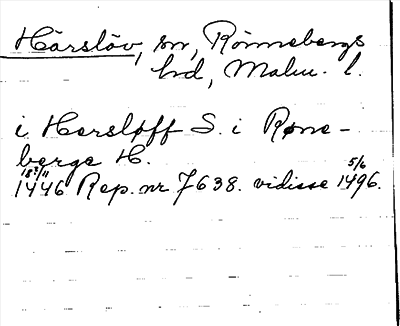 Härslöv, sn, Rönnebergs
hd, Malm. l.
i Hersløff S. i Røne-
bergs H.
18/11 5/6
1446 Rep. nr 7638. vidisse 1496.